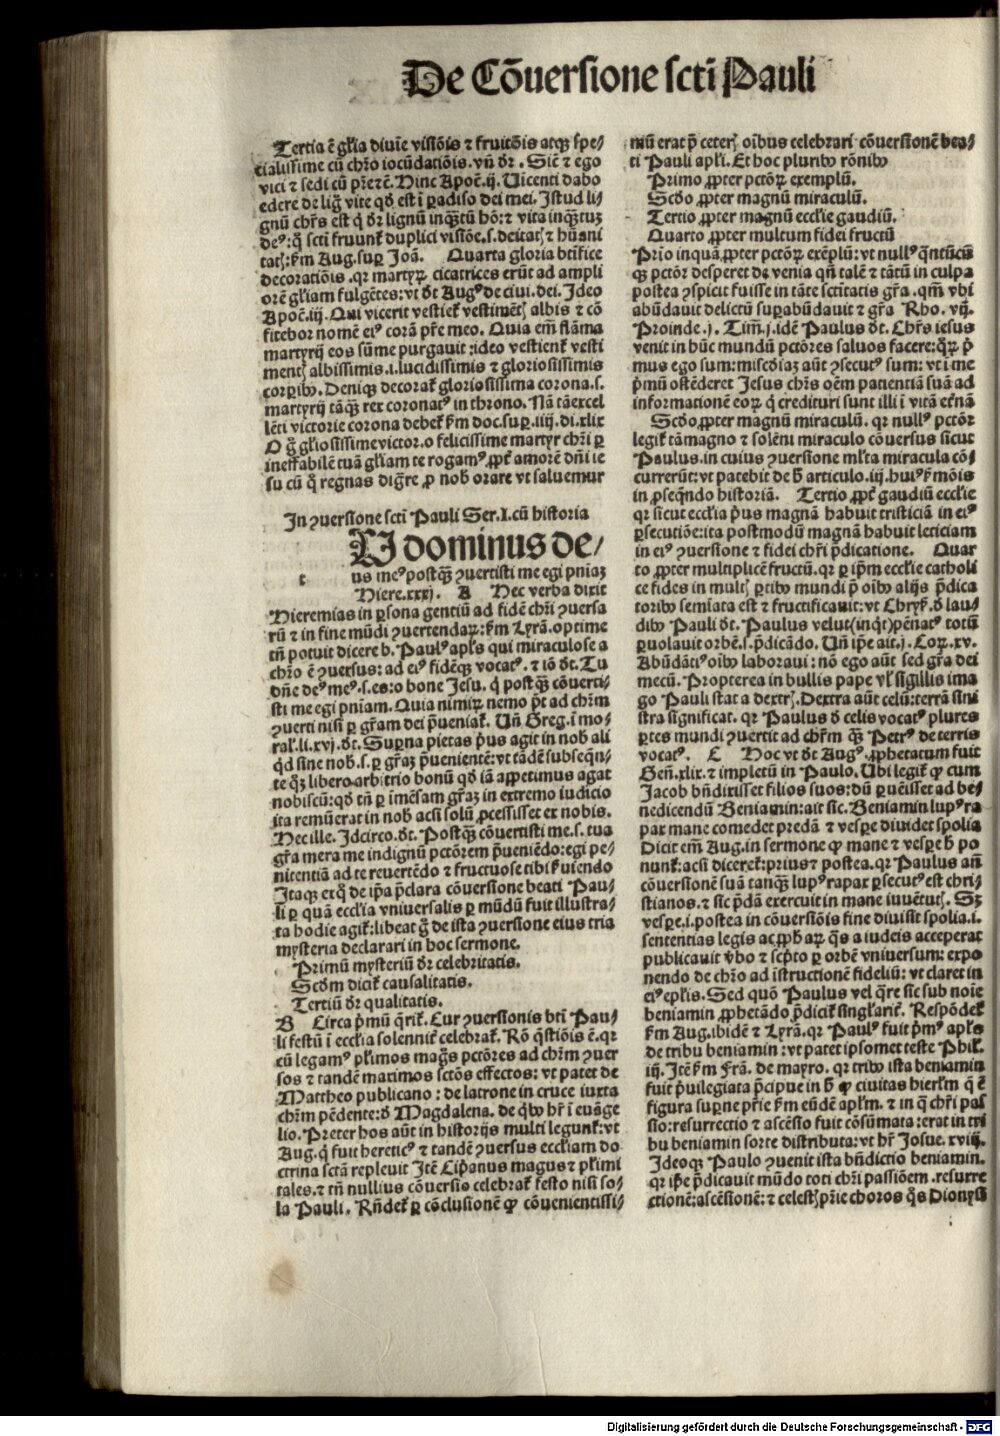 De Cōuersione scti Pauli
Tertia ē gl'ia diuīe visiōis ⁊ fruitōis atqꝫ spe⸗
cialissime cū chr̄o iocūdatiōis. vn̄ dr̄. Siē ⁊ ego
vici ⁊ sedi cū pr̄e r̄c. Hinc Apoc̄. ij. Uicenti dabo
edere de lig̃ vite qd̄ est ī ꝑadiso dei mei. Istud li⸗
gnū chr̄s est q̇ dr̄ lignū inqꝫtū hō: ⁊ vita inqꝫtuꝫ
deꝰ: q̄ scti fruunt̄ duplici visiōe. s. deitatꝭ ⁊ hūani
tatꝭ: ẜm Aug. suꝑ Joā. Quarta gloria dr̄ifice
decoratiōis. qꝛ martyꝝ cicatrices erūt ad ampli
orē gl'iam fulgētes: vt dt̄ Augꝰ de ciui. dei. Ideo
Apoc̄. iij. Qui vicerit vestiet̄ vestimētꝭ albis ⁊ cō
fitebor nomē eiꝰ corā pr̄e meo. Quia em̄ flāma
martyrij eos sūme purgauit: ideo vestient̄ vesti
mentꝭ albissimis. i. lucidissimis ⁊ gloriosissimis
corꝑibꝰ. Deniqꝫ decorat̄ gloriosissima corona. s.
martyrij tāqꝫ rex coronatꝰ in throno. Nā tā excel
lēti victorie corona debet̄ ẜm doc. suꝑ. iiij. di. xlix
O g̊ gl'iosissime victor. o felicissime martyr chr̄i ꝑ
ineffabilē tuā gl'iam te rogamꝰ ꝓpt̄ amorē dn̄i ie
su cū q̊ regnas dig̃re ꝓ nob̄ orare vt saluemur
In ꝯuersione scti Pauli Ser. I. cū historia
U dominus de⸗
t us meꝰ postqꝫ ꝯuertisti me egi pn̄iaꝫ
Hiere. xxxj. A Hec verba dixit
Hieremias in ꝑsona gentiū ad fidē chr̄i ꝯuersa
rū ⁊ in fine mūdi ꝯuertendaꝝ: ẜm Lyrā. optime
tn̄ potuit dicere b. Paulꝰ apl's qui miraculose a
chr̄o ē ꝯuersus: ad eiꝰ fidēqꝫ vocatꝰ. ⁊ iō dt̄. Tu
dn̄e deꝰ meꝰ. s. es: o bone Jesu. q̇ postqꝫ cōuerti⸗
sti me egi pn̄iam. Quia nimiꝝ nemo pt̄ ad chr̄m
ꝯuerti nisi ꝑ gr̄am dei p̄ueniat̄. Un̄ Greg. ī mo⸗
ral'. li. xvj. dt̄. Suꝑna pietas p̄us agit in nob̄ ali
qd̄ sine nob̄. s. ꝑ gr̄aꝫ p̄uenientē: vt tādē subseqn̄⸗
te qꝫ libero arbitrio bonū qd̄ iā appetimus agat
nobiscū: qd̄ tn̄ ꝑ imēsam gr̄aꝫ in extremo iudicio
ita remūerat in nob̄ acsi solū ꝓcessisset ex nobis.
Hec ille. Idcirco. dt̄. Postqꝫ cōuertisti me. s. tua
gr̄a mera me indignū pctōrem p̄ueniēdo: egi pe⸗
nitentiā ad te reuertēdo ⁊ fructuose tibi ẜuiendo
Itaqꝫ ex q̊ de ip̄a p̄clara cōuersione beati Pau⸗
li ꝑ quā eccl'ia vniuersalis ꝑ mūdū fuit illustra⸗
ta hodie agit̄: libeat g̊ de ista ꝯuersione eius tria
mysteria declarari in hoc sermone.
Primū mysteriū dr̄ celebritatis.
Scd̄m dicit̄ causalitatis.
Tertiū dr̄ qualitatis.
B Circa p̄mū q̄rit̄. Cur ꝯuersionis bti Pau⸗
li festū ī eccl'ia solennit̄ celebrat̄. Rō q̄stiōis ē. qꝛ
cū legamꝰ pl'imos mag̃s pctōres ad chr̄m ꝯuer
sos ⁊ tandē maximos sctōs effectos: vt patet de
Mattheo publicano: de latrone in cruce iuxta
chr̄m pēdente: d̄ Magdalena. de qbꝰ hr̄ ī euāge
lio. Preter hos aūt in historijs multi legunt̄: vt
Aug. q̇ fuit hereticꝰ ⁊ tandē ꝯuersus eccl'iam do
ctrina sctā repleuit Itē Cip̄anus magus ⁊ pl'imi
tales. ⁊ tn̄ nullius cōuersio celebrat̄ festo nisi so⸗
la Pauli. Rn̄det̄ ꝑ cōclusionē ꝙ cōuenientissi⸗
mū erat p̄ ceterꝭ oībus celebrari cōuersionē bea⸗
ti Pauli apl'i. Et hoc pluribꝰ rōnibꝰ
Primo ꝓpter pctōꝝ exemplū.
Scd̄o ꝓpter magnū miraculū.
Tertio ꝓpter magnū eccl'ie gaudiū.
Quarto ꝓpter multum fidei fructū
Prio inquā ꝓpter pctōꝝ exēplū: vt nullꝰ q̄ntūcū
qꝫ pctōr desperet de venia qn̄ talē ⁊ tātū in culpa
postea ꝯspicit fuisse in tāte sctitatis gr̄a. qm̄ vbi
abūdauit delictū suꝑabūdauit ⁊ gr̄a Rho. vij.
Proinde. j. Tim̄. j. idē Paulus dt̄. Chr̄s iesus
venit in hūc mundū pctōres saluos facere: qꝝ p̄
mus ego sum: misc̄diaꝫ aūt ꝯsecutꝰ sum: vt ī me
p̄mū ostēderet Jesus chr̄s oēm patientiā suā ad
informationē eoꝝ q̇ credituri sunt illi ī vitā et̄nā
Scd̄o ꝓpter magnū miraculū. qꝛ nullꝰ pctōr
legit̄ tā magno ⁊ solēni miraculo cōuersus sicut
Paulus. in cuius ꝯuersione ml'ta miracula cō⸗
currerūt: vt patebit de h̄ articulo. iij. huiꝰ ẜmōis
in ꝓseqn̄do historiā. Tertio ꝓpt̄ gaudiū eccl'ie
qꝛ sicut eccl'ia p̄us magnā habuit tristiciā in eiꝰ
ꝑsecutiōe: ita postmodū magnā habuit leticiam
in eiꝰ ꝯuersione ⁊ fidei chr̄i p̄dicatione. Quar
to ꝓpter multiplicē fructū. qꝛ ꝑ ip̄m eccl'ie catholi
ce fides in multꝭ ꝑtibꝰ mundi p̄ oībꝰ alijs p̄dica
toribꝰ semīata est ⁊ fructificauit: vt Chryẜ. d̄ lau⸗
dibꝰ Pauli dt̄. Paulus velut (inqt) pēnatꝰ totū
ꝑuolauit orbē. s. p̄dicādo. Un̄ ip̄e ait. j. Coꝝ. xv.
Abūdātiꝰ oībꝰ laboraui: nō ego aūt sed gr̄a dei
mecū. Propterea in bullis pape vl' sigillis ima
go Pauli stat a dextrꝭ. Dextra aūt celū: terrā sini
stra significat. qꝛ Paulus d̄ celis vocatꝰ plures
ꝑtes mundi ꝯuertit ad chr̄m qꝫ Petrꝰ de terris
vocatꝰ. C Hoc vt dt̄ Augꝰ. ꝓphetatum fuit
Gen̄. xlix. ⁊ impletū in Paulo. Ubi legit̄ ꝙ cum
Jacob bn̄dixisset filios suos: dū ꝑuēisset ad be⸗
nedicendū Beniamin: ait sic. Beniamin lupꝰ ra
pax mane comedet predā ⁊ vesꝑe diuidet spolia
Dicit em̄ Aug. in sermone ꝙ mane ⁊ vesꝑe h̄ po
nunt̄: acsi diceret̄: prius ⁊ postea. qꝛ Paulus an̄
cōuersionē suā tanqꝫ lupꝰ rapax ꝑsecutꝰ est chri⸗
stianos. ⁊ sic p̄dā exercuit in mane iuuētutꝭ. Sꝫ
vesꝑe. i. postea in cōuersiōis fine diuisit spolia. i.
sententias legis ac ꝓphaꝝ q̄s a iudeis acceperat
publicauit v̄bo ⁊ scp̄to ꝑ orbē vniuersum: expo
nendo de chr̄o ad īstructionē fideliū: vt claret in
eiꝰ epl'is. Sed quō Paulus vel q̄re sic sub noīe
beniamin ꝓphetādo p̄dicit̄ singl'arit̄. Respōdet̄
ẜm Aug. ibidē ⁊ Lyrā. qꝛ Paulꝰ fuit p̄mꝰ apl's
de tribu beniamin: vt patet ipsomet teste Phil'.
iij. Itē ẜm Frā. de mayro. qꝛ tribꝰ ista beniamin
fuit p̄uilegiata p̄cipue in h̄ ꝙ ciuitas hierl'm q̄ ē
figura suꝑne pr̄ie ẜm eūdē apl'm. ⁊ in q̄ chr̄i pas
sio: resurrectio ⁊ ascēsio fuit cōsūmata: erat in tri
bu beniamin sorte distributa: vt hr̄ Josue. xviij.
Ideoqꝫ Paulo ꝯuenit ista bn̄dictio beniamin.
qꝛ ip̄e p̄dicauit mūdo toti chr̄i passiōem. resurre
ctionē: ascēsionē: ⁊ celestꝭ pr̄ie choros q̄s Dionysi
Digitalisierung gefördert durch die Deutsche Forschungsgemeinschaft - DFG